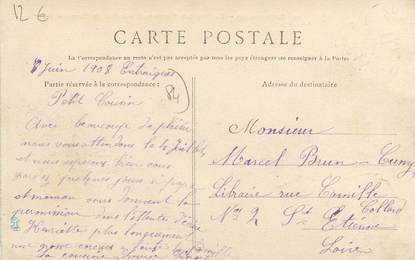 12 €
CARTE POSTALE
La Correspondance au recto n'est pas acceptée par tous les pays étrangers (se renseigner à la Poste)
8 Juin 1908 Entraigues
Partie réservée à la correspondance :
Adresse du destinataire
84
Petit Cousin
Avec beaucoup de plaisir
nous vous attendons le 4 Juillet
et nous espérons bien vous
garder quelques jours si papa
et maman vous donnent la
permission
Henriette plus longuement
une grosse caresse
La cousine
Monsieur
Marcel Brun - Cuny
Libraire rue Camille
Collard
No 2 St Etienne
Loire